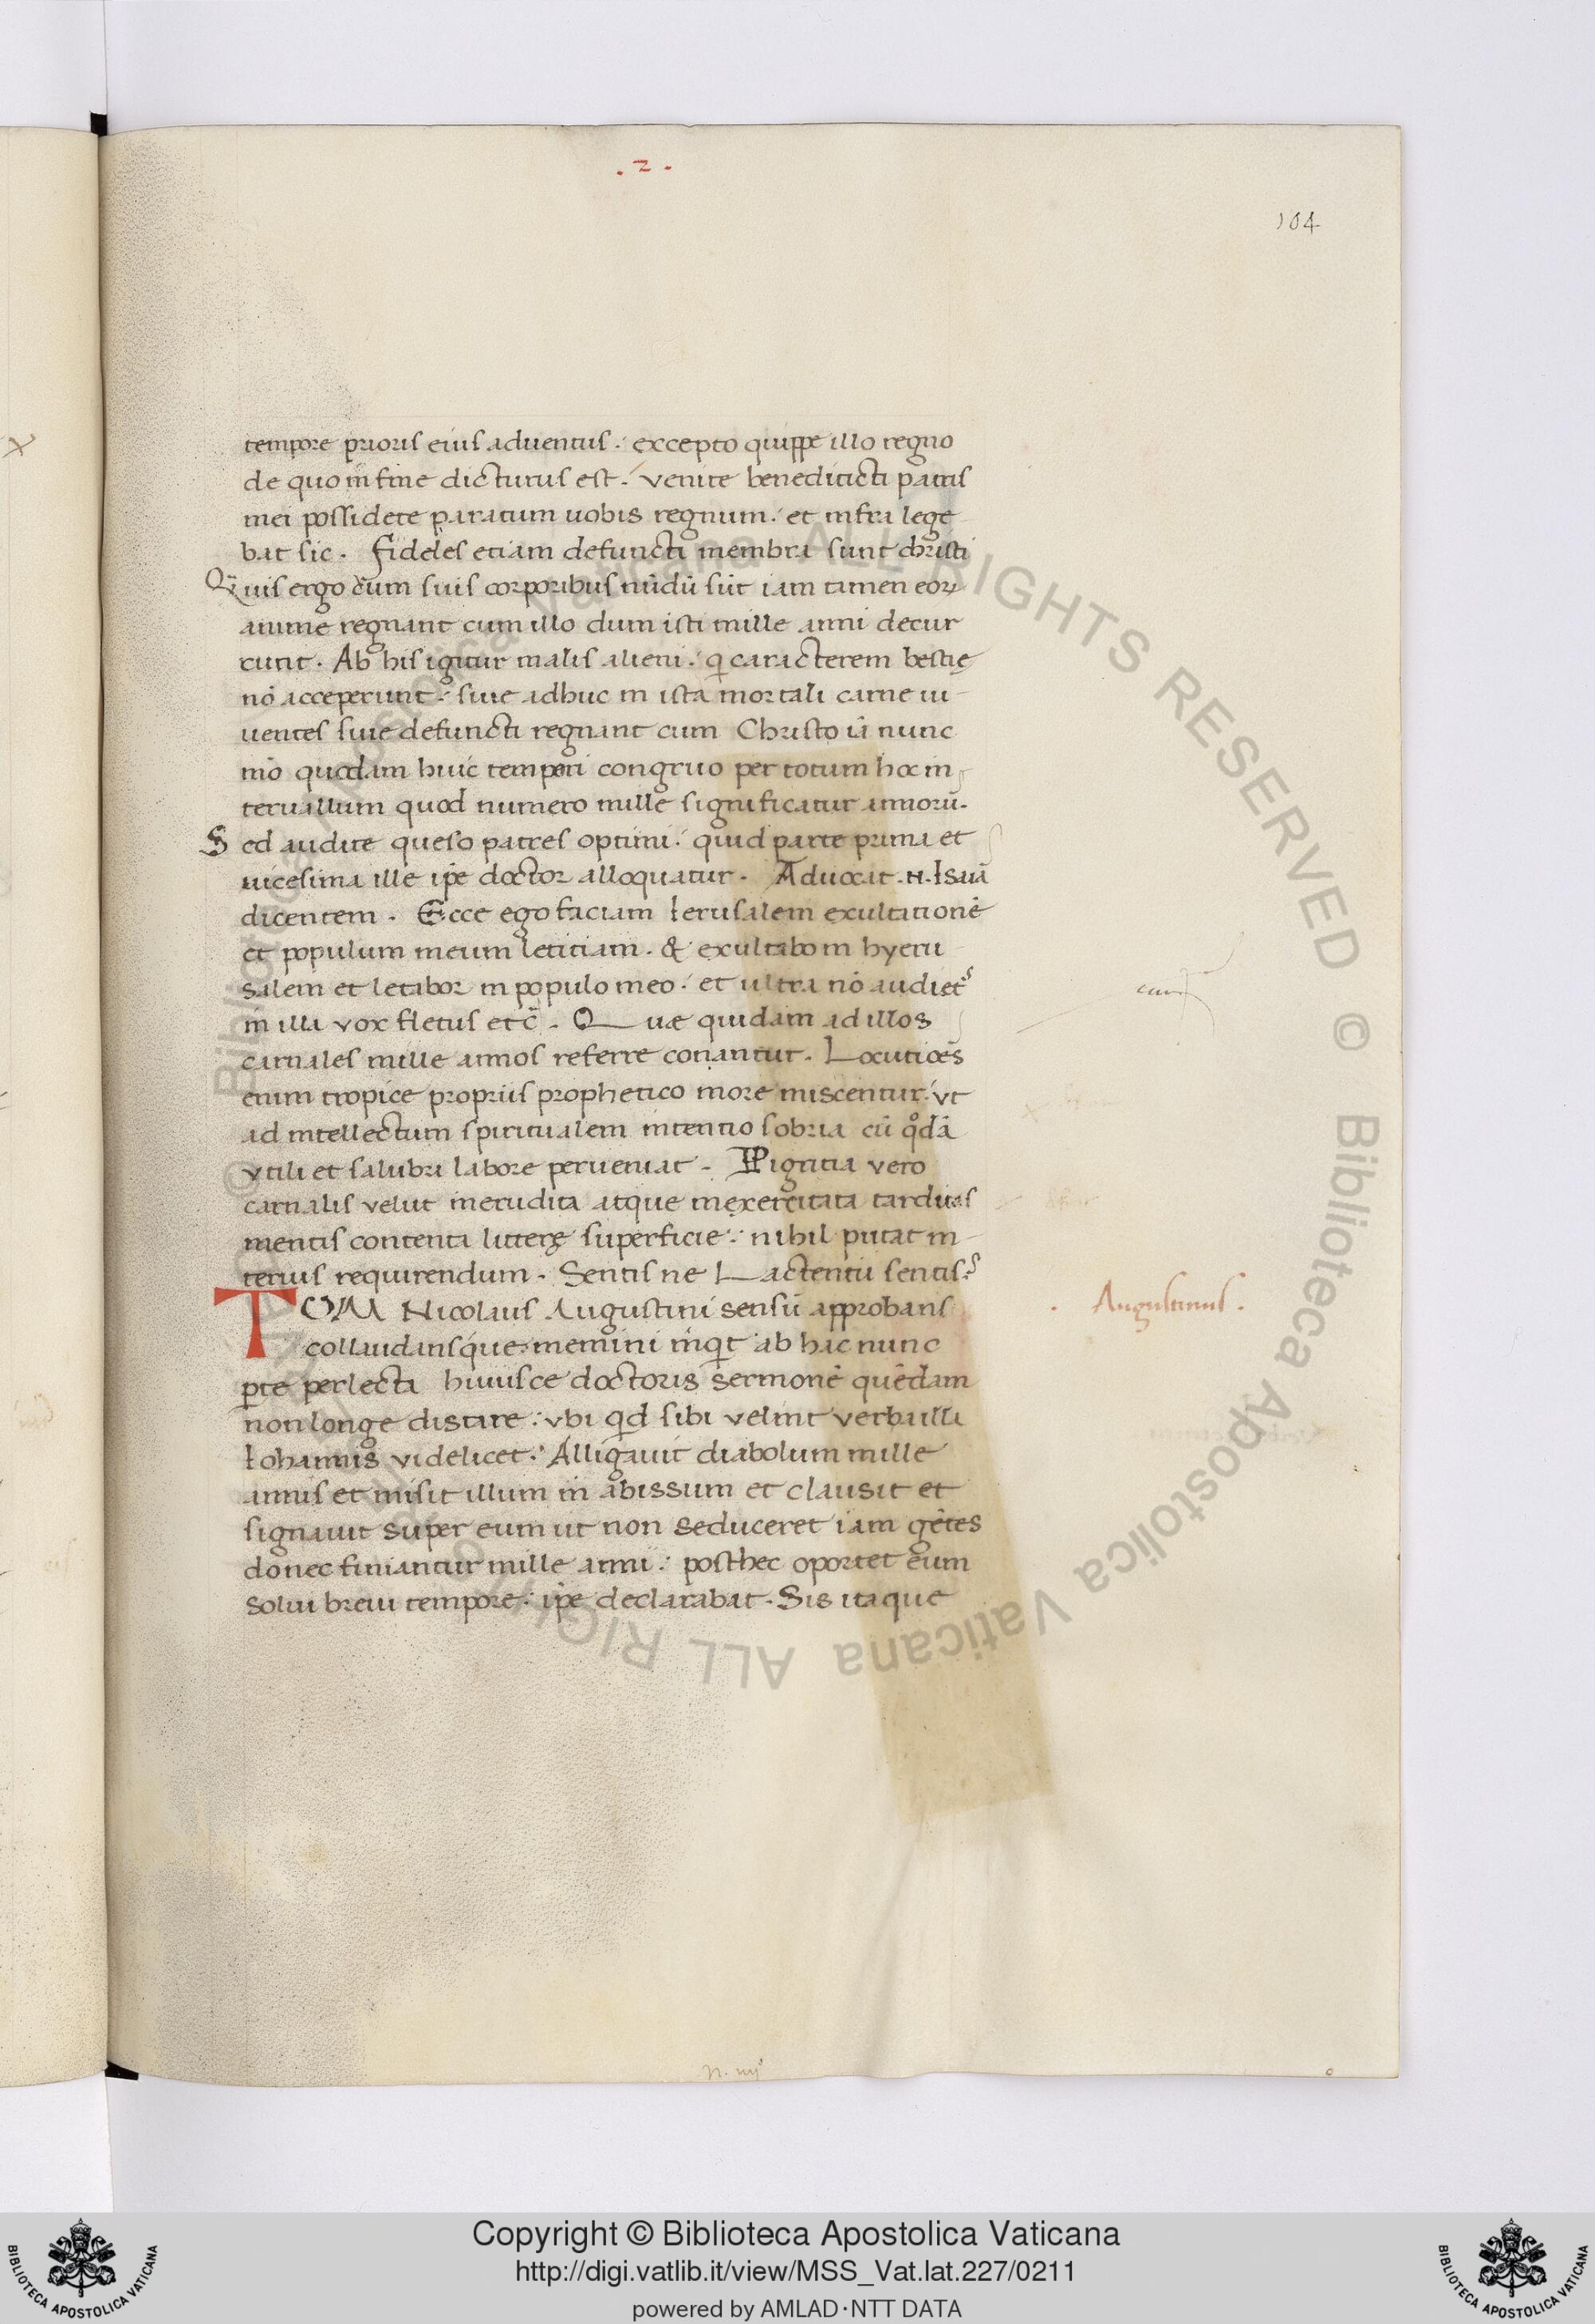 .2.
104
tempore prioris eius aduentus: excepto quippe illo regno
de quo in fine dicturus est. venite benediticti patris
mei possidete paratum uobis regnum: et infra lege
bat sic. Fideles etiam defuncti membra sunt christi
Quis ergo cum suis corporibus nūdū sūt iam tamen eoꝝ
anime regnant cum illo dum isti mille anni decur
runt. Ab his igitur malis alieni: qi caracterem bestię
nō acceperunt: siue adhuc in ista mortali carne ui-
uentes siue defuncti regnant cum Christo iā nunc
mō quodam huic tempori congruo per totum hoc in
teruallum quod numero mille significatur annorū.
Sed audite queso patres optimi: quid parte prima et
uicesima ille ip̄e doctor alloquatur. Aduocat .n. Isaiā
dicentem. Ecce ego faciam Ierusalem exultationē
et populum meum letitiam. & exultabo in hyeru
salem et letabor in populo meo: et ultra nō audiet
in illa vox fletus etc̄. Quæ quidam ad illos
carnales mille annos referre conantur. Locutiōes
enim tropice propriis prophetico more miscentur: vt
ad intellectum spiritualem intentio sobria cū qodā
vtili et salubri labore perueniat. Pigritia vero
carnalis velut inerudita atque inexercitata tarditas
mentis contenta litterę superficie: nihil putat in-
terius requirendum. Sentis ne Lactenti sentis?
TUM Nicolaus Augustini sensū approbans
collaudansque: memini inqit ab hac nunc
ꝑte perlecta huiusce doctoris sermonē quēdam
non longe distare: vbi qid sibi velint verba illa
Iohannis videlicet: Alligauit diabolum mille
annis et misit illum in abissum et clausit et
signauit super eum ut non seduceret iam gētes
donec finiantur mille anni: post hec oportet eum
solui breui tempore: ip̄e declarabat. Sis itaque
. Augustinus.
n. iiij
Copyright © Biblioteca Apostolica Vaticana
http://digi.vatlib.it/view/MSS_Vat.lat.227/0211
powered by AMLAD·NTT DATA
BIBLIOTECA APOSTOLICA VATICANA
BIBLIOTECA APOSTOLICA VATICANA
© Biblioteca Apostolica Vaticana ALL RIGHTS RESERVED
© Biblioteca Apostolica Vaticana ALL RIGHTS RESERVED